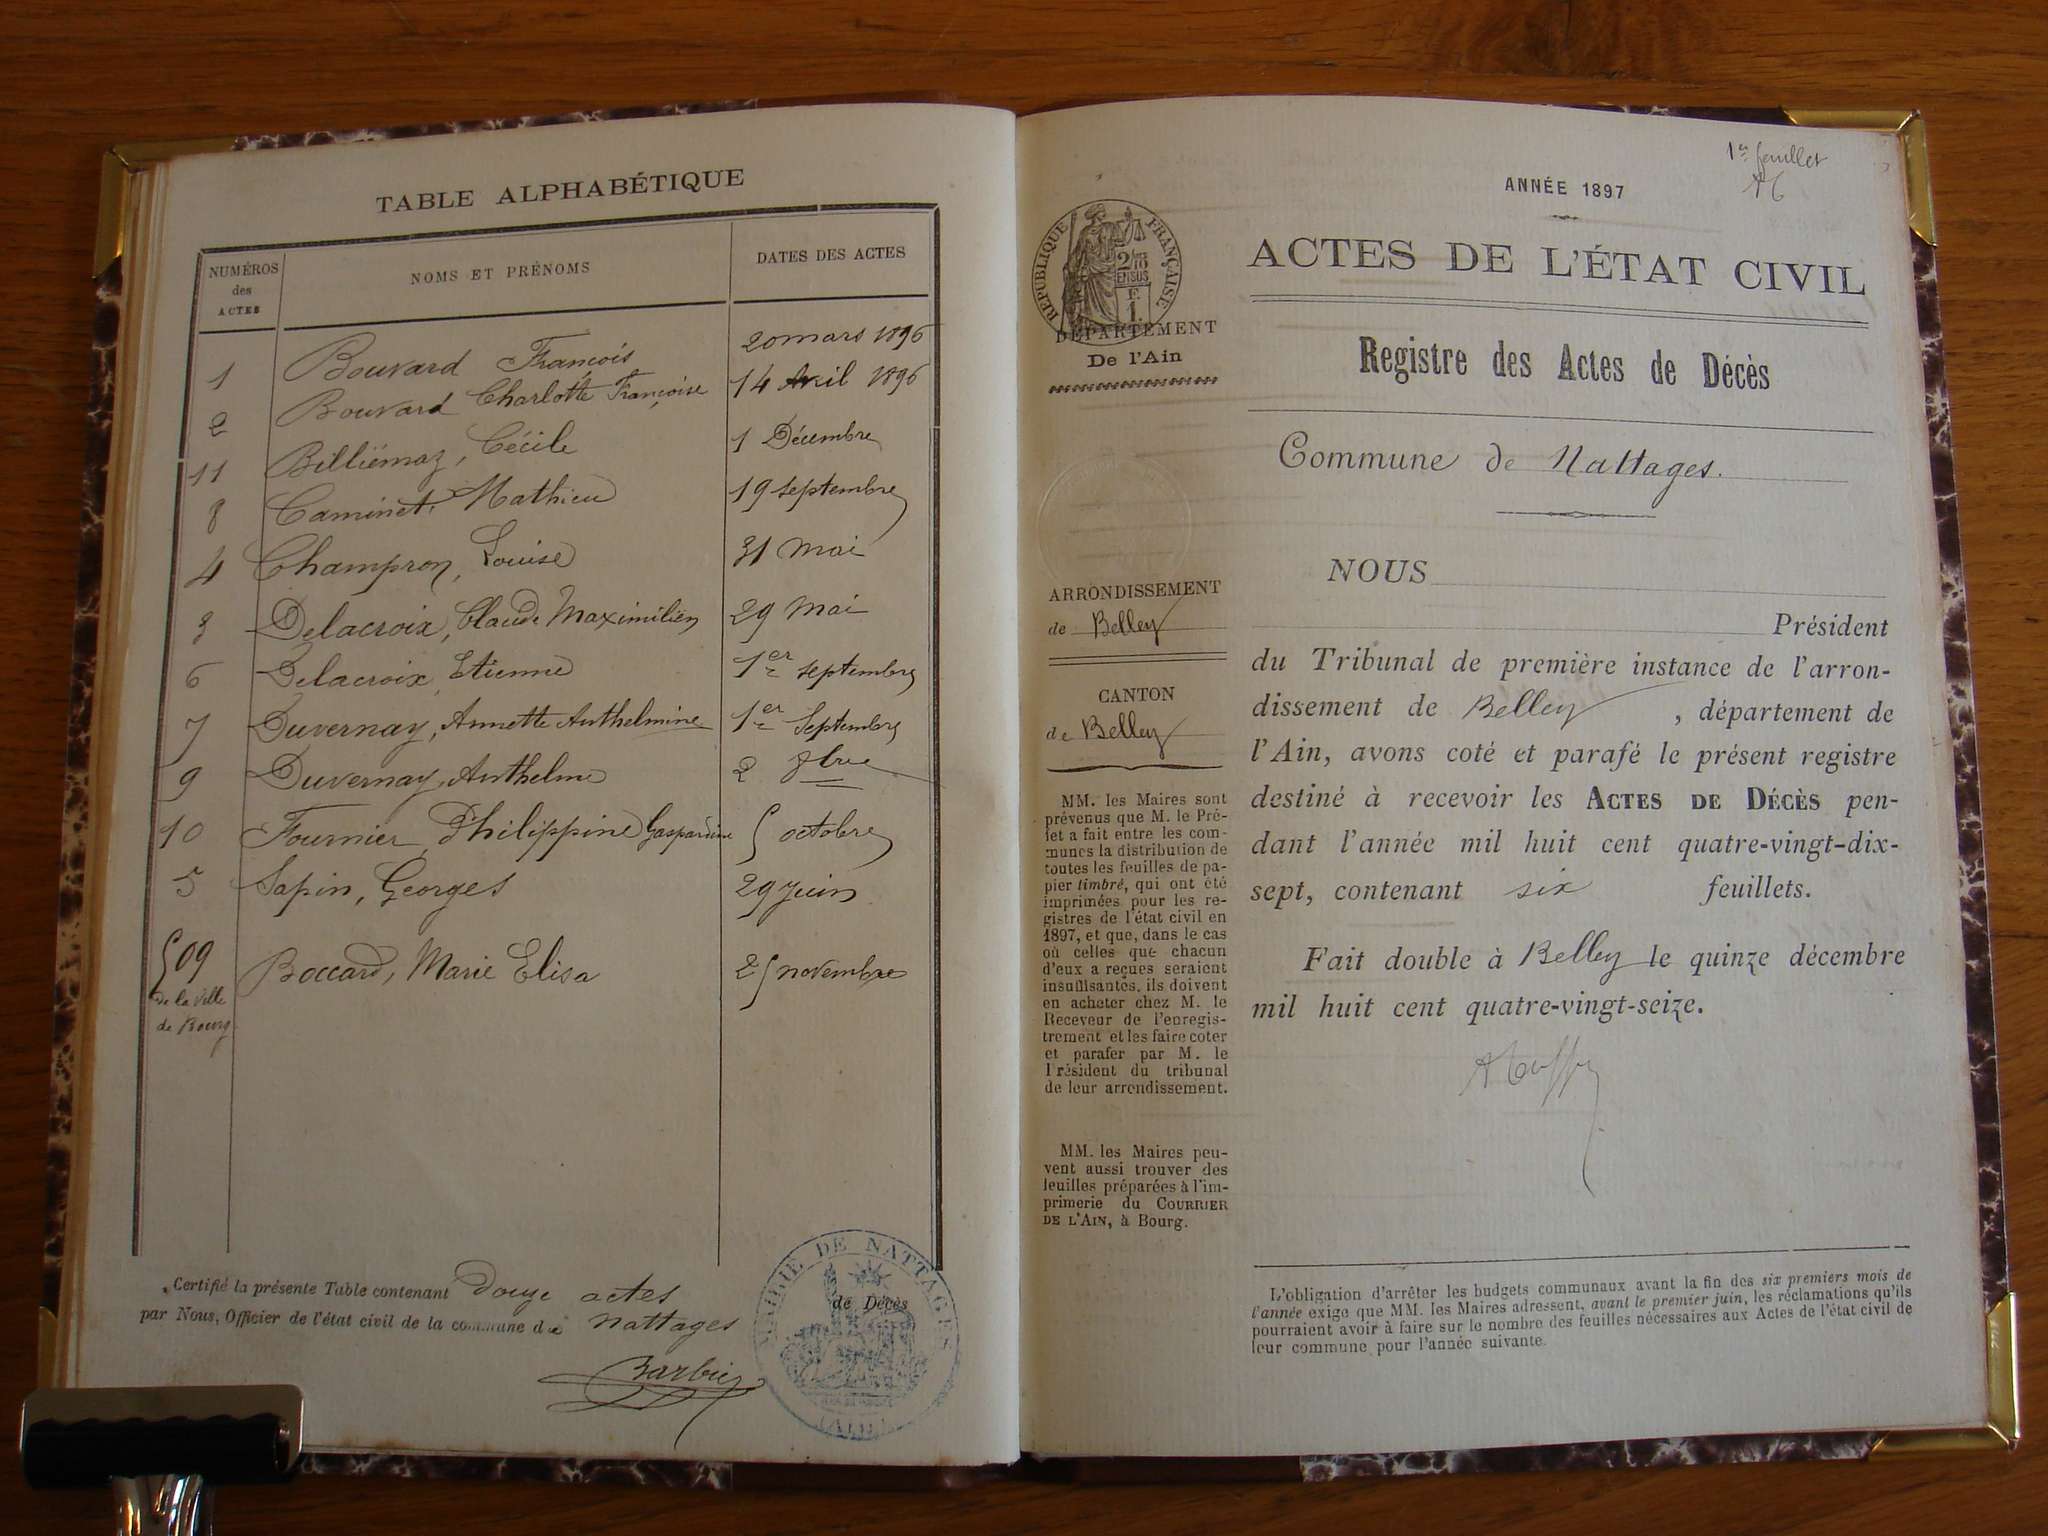 TABLE ALPHABÉTIQUE
NUMÉROS des ACTES
NOMS ET PRÉNOMS
DATES DES ACTES
1 Bouvard François 20 mars 1896
2 Bouvard Charlotte Françoise 14 Avril 1896
11 Billiémaz, Cécile 1 Décembre
8 Caminet, Mathieu 19 septembre
4 Champron, Louise 31 mai
3 Delacroix, Claude Maximilien 29 Mai
6 Delacroix, Etienne 1er septembre
7 Duvernay, Annette Anthelmine 1er Septembre
9 Duvernay, Anthelme 2 8bre
10 Fournier, Philippine Gaspardine 5 octobre
5 Sapin, Georges 29 juin
509 Boccard, Marie Elisa 25 novembre
de la ville
de Bourg
Certifié la présente Table contenant douze actes de Décès
par Nous, Officier de l'état civil de la commune de Nattages
Barbier
MAIRIE DE NATTAGES
(AIN)
1er feuillet
ANNÉE 1897
RÉPUBLIQUE FRANÇAISE
2/10 EN SUS
F.
1.
DÉPARTEMENT
De l'Ain
ACTES DE L'ÉTAT CIVIL
Registre des Actes de Décès
Commune de Nattages.
ARRONDISSEMENT
de Belley
CANTON
de Belley
MM. les Maires sont
prévenus que M. le Pré-
fet a fait entre les com-
munes la distribution de
toutes les feuilles de pa-
pier timbré, qui ont été
imprimées pour les re-
gistres de l'état civil en
1897, et que, dans le cas
où celles que chacun
d'eux a reçues seraient
insuffisantes, ils doivent
en acheter chez M. le
Receveur de l'enregis-
trement et les faire coter
et parafer par M. le
Président du tribunal
de leur arrondissement.
MM. les Maires peu-
vent aussi trouver des
feuilles préparées à l'im-
primerie du COURRIER
DE L'AIN, à Bourg.
NOUS
Président
du Tribunal de première instance de l'arron-
dissement de Belley , département de
l'Ain, avons coté et parafé le présent registre
destiné à recevoir les ACTES DE DÉCÈS pen-
dant l'année mil huit cent quatre-vingt-dix-
sept, contenant six feuillets.
Fait double à Belley le quinze décembre
mil huit cent quatre-vingt-seize.
L'obligation d'arrêter les budgets communaux avant la fin des six premiers mois de
l'année exige que MM. les Maires adressent, avant le premier juin, les réclamations qu'ils
pourraient avoir à faire sur le nombre des feuilles nécessaires aux Actes de l'état civil de
leur commune pour l'année suivante.